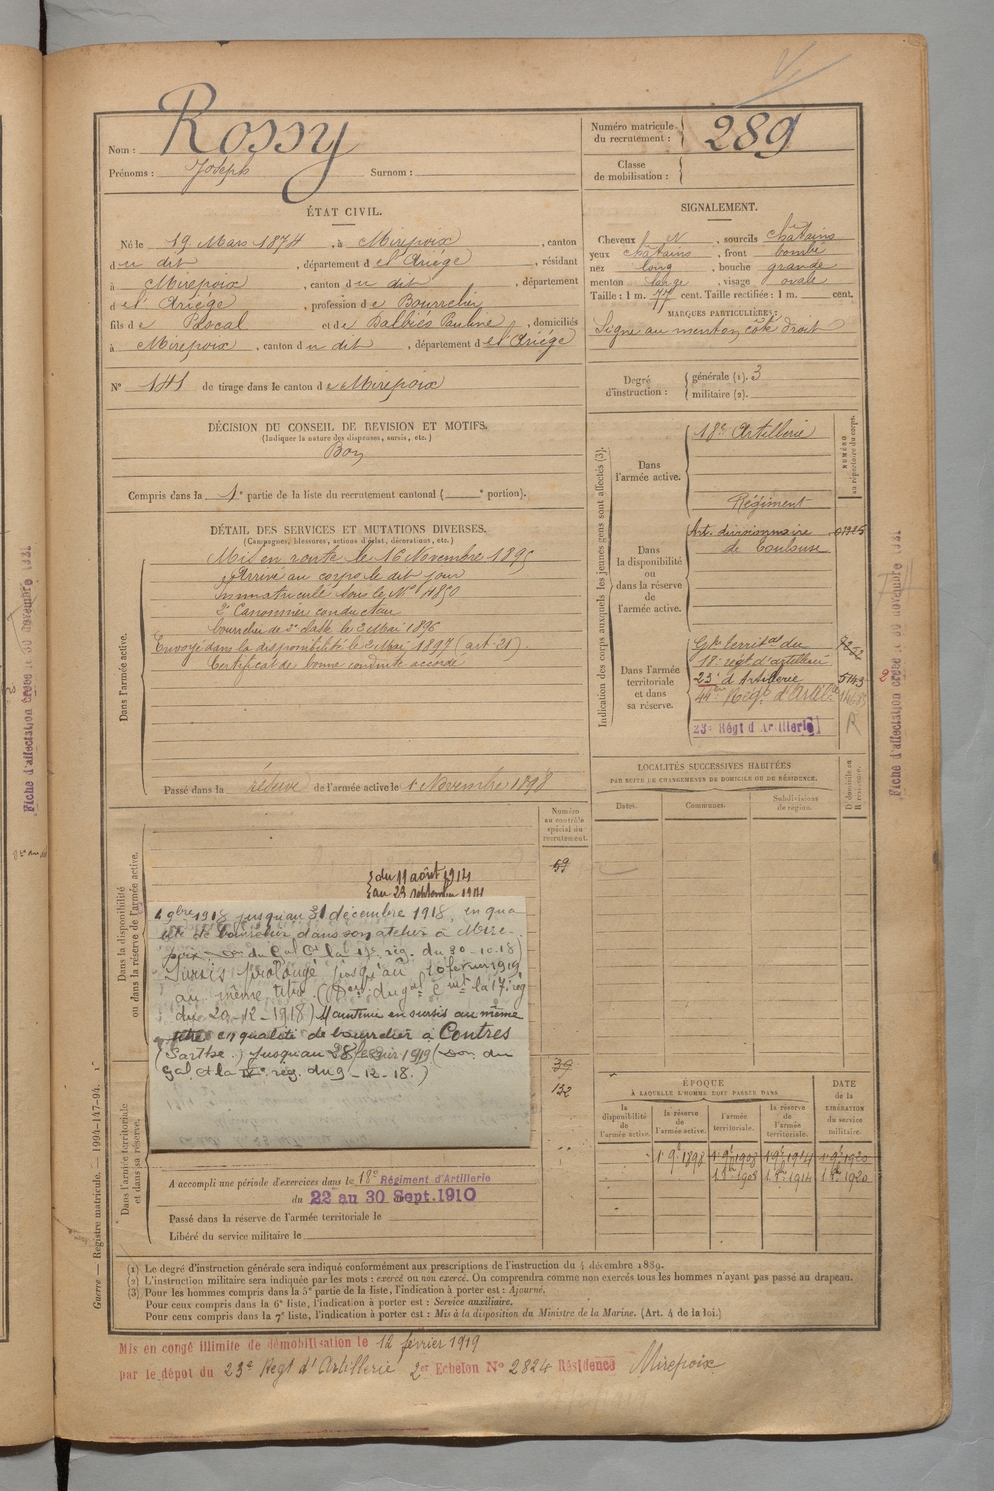 Nom : Rossy
Prénoms : Joseph Surnom :
Numéro matricule du recrutement : 289
Classe de mobilisation :
ÉTAT CIVIL.
Né le 19 Mars 1874, à Mirepoix, canton
du dit, département de l'Ariège, résidant
à Mirepoix, canton du dit, département
de l'Ariège, profession de Bourrelier
fils de Pascal et de Balbiés Pauline, domiciliés
à Mirepoix, canton du dit, département de l'Ariège
N° 141 de tirage dans le canton de Mirepoix
SIGNALEMENT.
Cheveux et, sourcils châtains
yeux châtains, front bombé
nez long, bouche grande
menton large, visage ovale
Taille : 1 m. 77 cent. Taille rectifiée : 1 m. cent.
MARQUES PARTICULIÈRES :
Signe au menton côté droit
Degré d'instruction : générale (1). 3
militaire (2).
DÉCISION DU CONSEIL DE REVISION ET MOTIFS.
(Indiquer la nature des dispenses, sursis, etc.)
Bon
Compris dans la 1e partie de la liste du recrutement cantonal ( e portion).
DÉTAIL DES SERVICES ET MUTATIONS DIVERSES.
(Campagnes, blessures, actions d'éclat, décorations, etc.)
Dans l'armée active.
Mis en route le 16 Novembre 1895
Arrivé au corps le dit jour
Immatriculé sous le N° 4850
2e Canonnier conducteur
bourrelier de 2e classe le 2 Mai 1896
Envoyé dans la disponibilité le 2 Mai 1897 (art. 21).
Certificat de bonne conduite accordé
Passé dans la réserve de l'armée active le 1er Novembre 1898
Indication des corps auxquels les jeunes gens sont affectés (3).
NUMÉRO au répertoire du corps.
Dans l'armée active.
18e Artillerie
Dans la disponibilité ou dans la réserve de l'armée active.
Régiment
Art. divisionnaire
de Toulouse
Dans l'armée territoriale et dans sa réserve.
Gpe territal du
18e régt d'artillerie
23e d'Artillerie 5143
44e Régt d'Artie
23e Régt d'Artillerie
A
LOCALITÉS SUCCESSIVES HABITÉES
PAR SUITE DE CHANGEMENTS DE DOMICILE OU DE RÉSIDENCE.
Dates. Communes. Subdivisions de région. D. domicile ou R. résidence.
Dans la disponibilité ou dans la réserve de l'armée active.
Numéro au contrôle spécial du recrutement.
59
du 11 août 1914
au 23 septembre 1914
1 9bre 1918 jusqu'au 31 décembre 1918, en qua
lité de bourrelier dans son atelier à Mire-
poix du Gal Ct la 17e rég. du 30-10-18)
Sursis prolongé jusqu'au 10 février 1919
au même titre. (Don du gal Cmt la 17e rég
du 20-12-1918) Maintenu en sursis au même
titre en qualité de bourrelier à Contres
(Sarthe.) jusqu'au 28 février 1919 (Don du
Gal Ct la IVe rég. du 9-12-18.)
39
132
Dans l'armée territoriale et dans sa réserve.
A accompli une période d'exercices dans le 18e Régiment d'Artillerie
du 22 au 30 Sept. 1910
Passé dans la réserve de l'armée territoriale le
Libéré du service militaire le
ÉPOQUE
À LAQUELLE L'HOMME DOIT PASSER DANS
DATE de la LIBÉRATION du service militaire.
la disponibilité de l'armée active. la réserve de l'armée active. l'armée territoriale. la réserve de l'armée territoriale.
1er 9bre 1898 1er 9bre 1908 1er 9bre 1914 1er 9bre 1920
(1) Le degré d'instruction générale sera indiqué conformément aux prescriptions de l'instruction du 4 décembre 1889.
(2) L'instruction militaire sera indiquée par les mots : exercé ou non exercé. On comprendra comme non exercés tous les hommes n'ayant pas passé au drapeau.
(3) Pour les hommes compris dans la 5e partie de la liste, l'indication à porter est : Ajourné.
Pour ceux compris dans la 6e liste, l'indication à porter est : Service auxiliaire.
Pour ceux compris dans la 7e liste, l'indication à porter est : Mis à la disposition du Ministre de la Marine. (Art. 4 de la loi.)
Guerre — Registre matricule. — 1994-147-94.
Mis en congé illimité de démobilisation le 12 février 1919
par le dépôt du 23e Régt d'Artillerie 2er Echelon N° 2824 Résidence Mirepoix
Fiche d'affectation créée le 30 novembre
Fiche d'affectation créée le 30 novembre